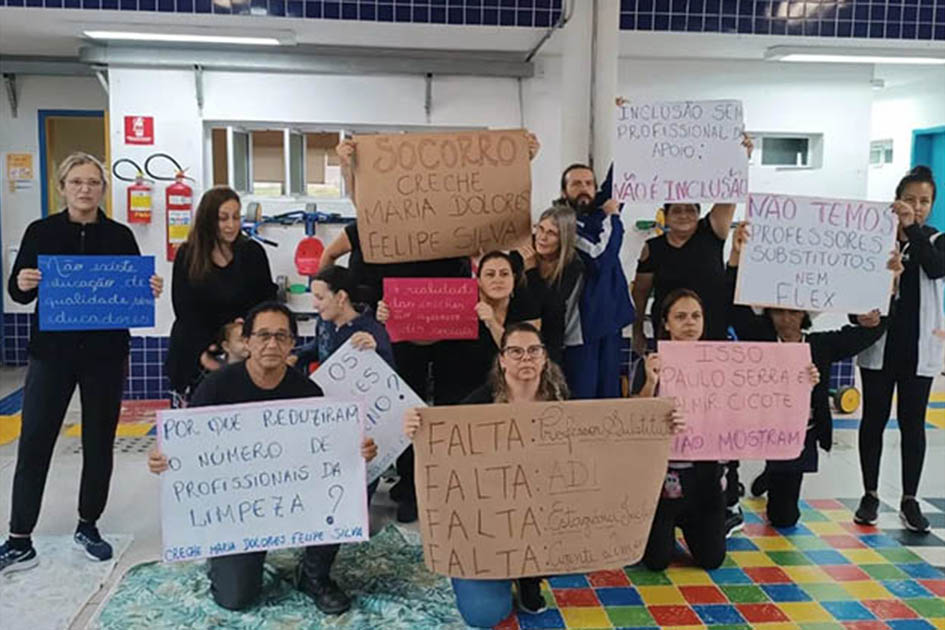 SOCORRO
CRECHE
MARIA DOLORES
FELIPE SILVA
INCLUSÃO SEM
PROFISSIONAL DE
APOIO:
NÃO É INCLUSÃO
NÃO TEMOS
PROFESSORES
SUBSTITUTOS
NEM
FLEX
Não existe
educação de
qualidade sem
educadores
A realidade
das creches
dis
sociais
ISSO
PAULO SERRA e
ALMIR CICOTE
NÃO MOSTRAM
OS
?
POR QUE REDUZIRAM
O NÚMERO DE
PROFISSIONAIS DA
LIMPEZA?
CRECHE MARIA DOLORES FELIPE SILVA
FALTA: Professor Substituto
FALTA: ADI
FALTA: Estagiária
FALTA: